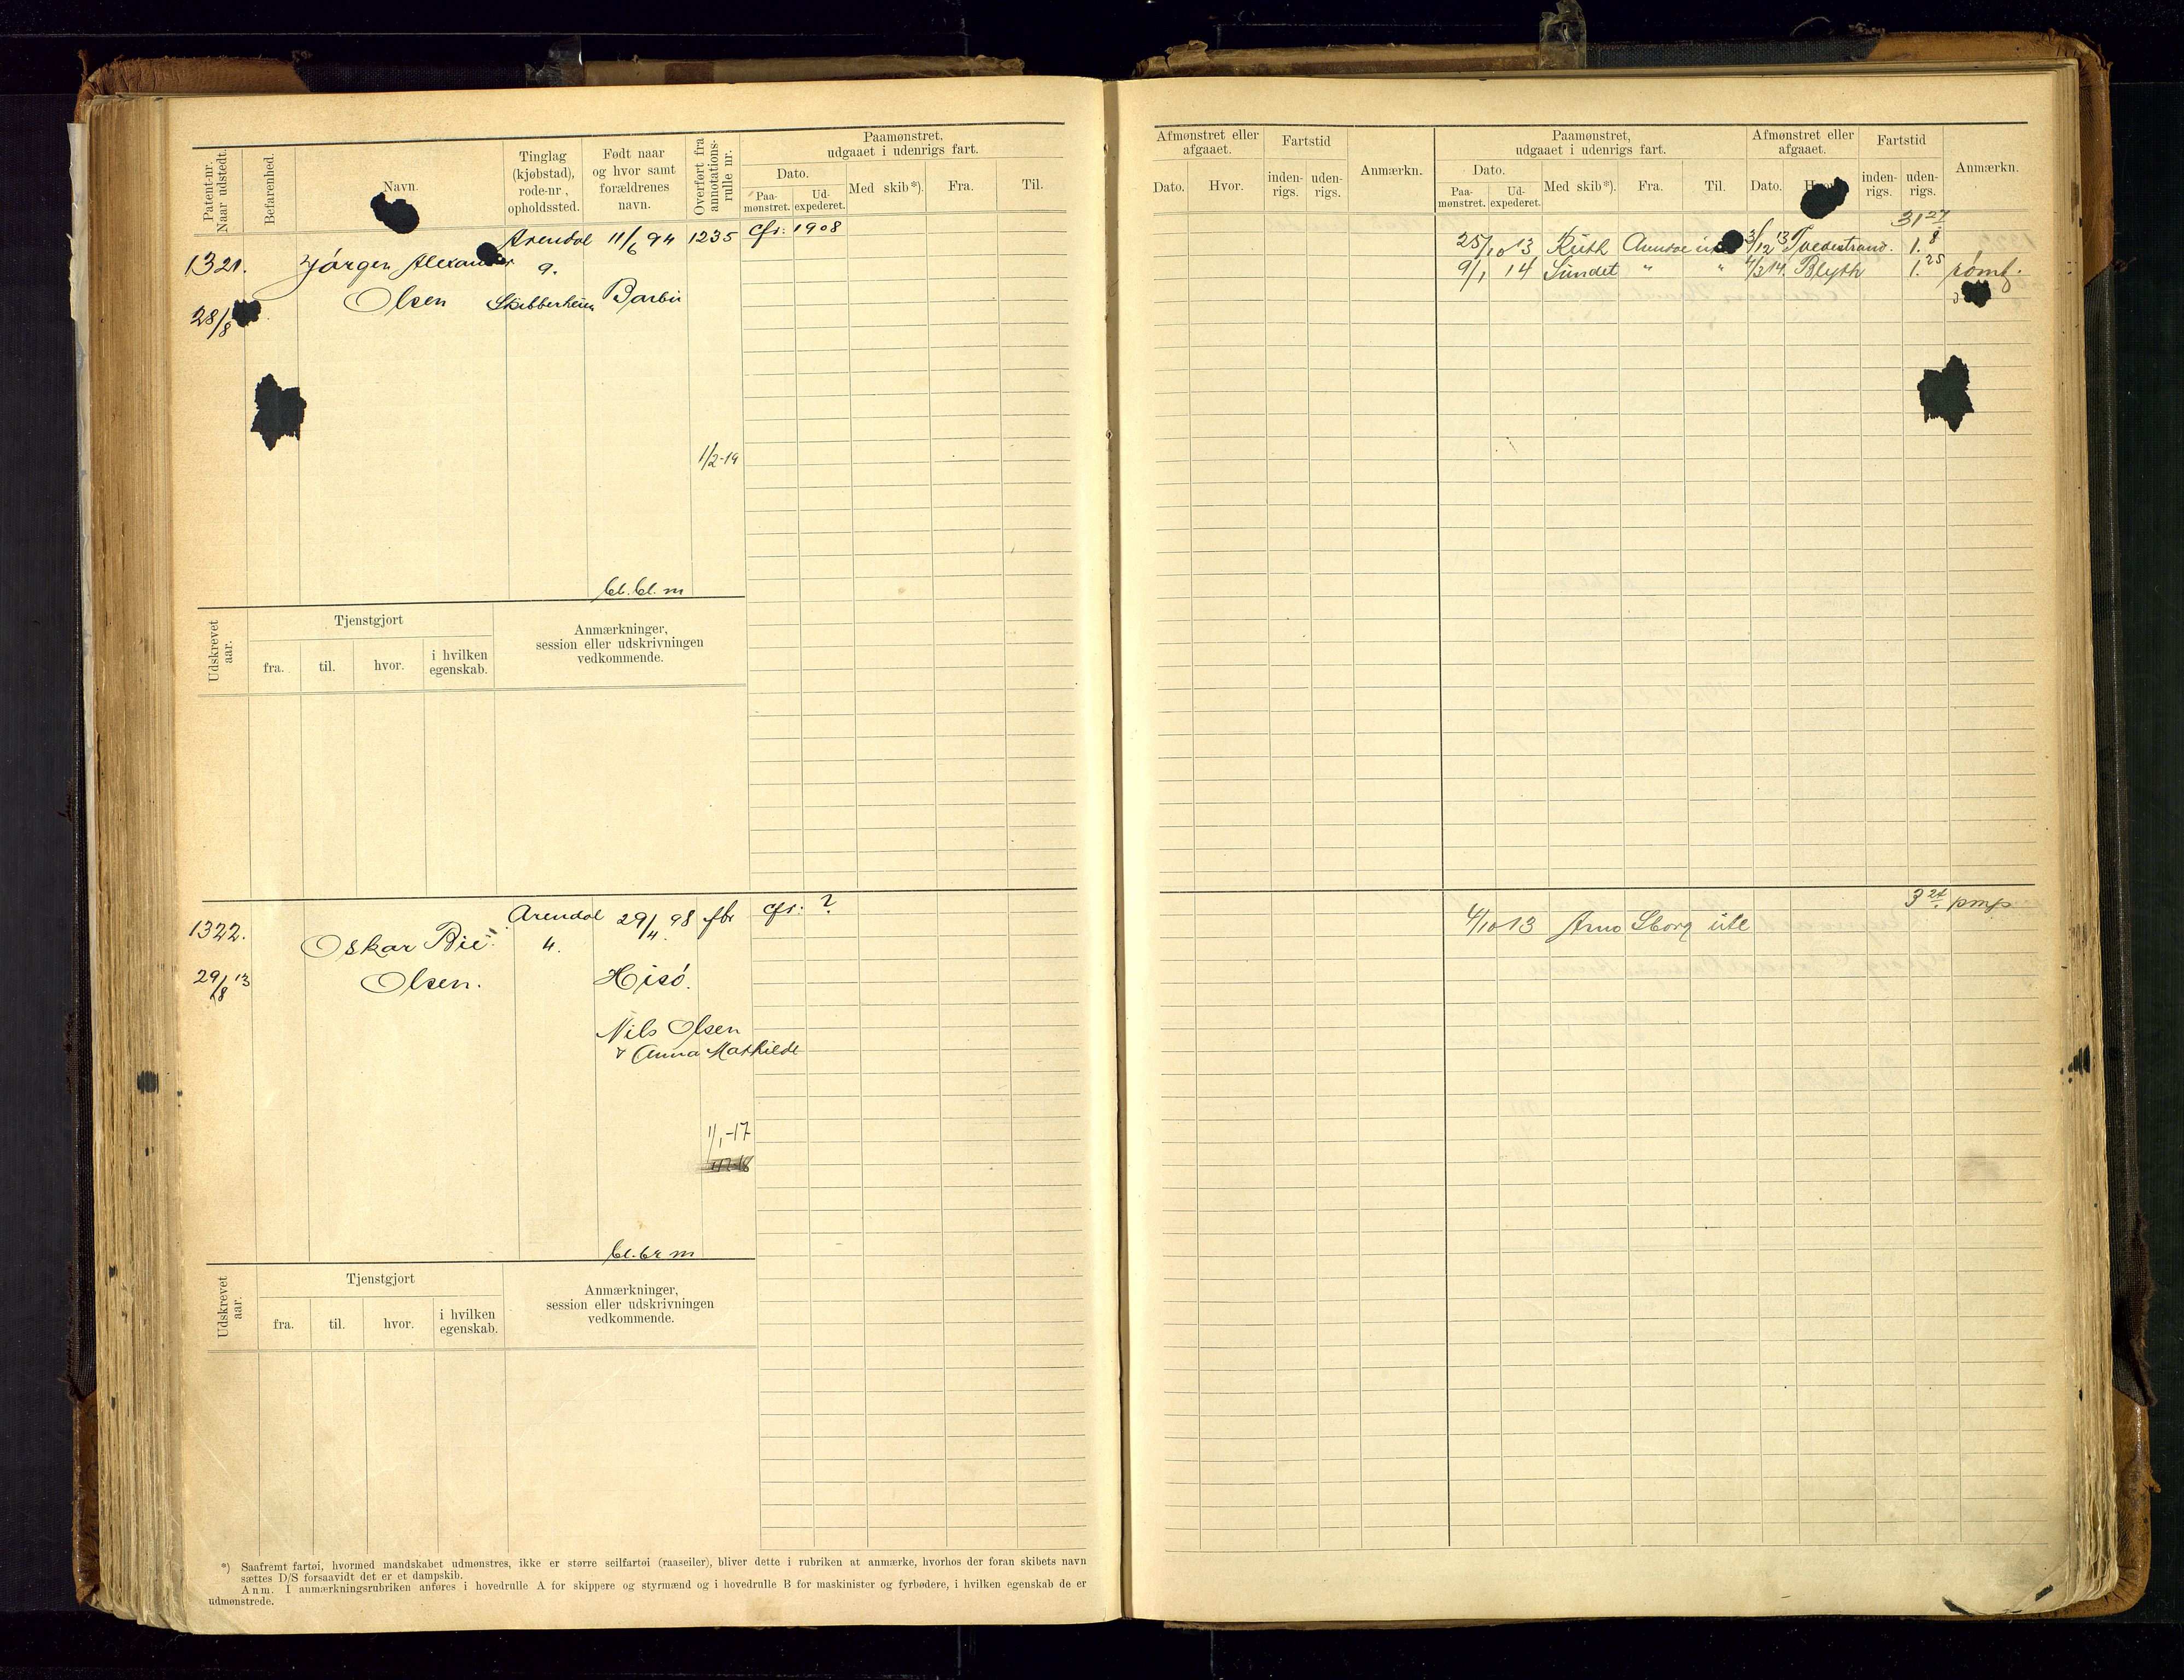 Patent-nr.
Naar udstedt.
Befarenhed.
Navn.
Tinglag
(kjøbstad),
rode-nr.,
opholdssted.
Født naar
og hvor samt
forældrenes
navn.
Overført fra
annotations-
rulle nr.
Paamønstret,
udgaaet i udenrigs fart.
Dato.
Paa-
mønstret.
Ud-
expederet.
Med skib*).
Fra.
Til.
1321.
28/8
Jörgen Alexander
Olsen
Arendal
9.
Skibberheien
11/6 94
Barbu
1235
cfr: 1908
1/2-19
bl. bl. m
Udskrevet
aar.
Tjenstgjort
fra.
til.
hvor.
i hvilken
egenskab.
Anmærkninger,
session eller udskrivningen
vedkommende.
1322.
29/8 13
Oskar Bie
Olsen.
Arendal
4.
29/4 98 fbr
Hisö.
Nils Olsen
& Anna Mathilde
cfr: ?
1/1-17
bl. br m
Udskrevet
aar.
Tjenstgjort
fra.
til.
hvor.
i hvilken
egenskab.
Anmærkninger,
session eller udskrivningen
vedkommende.
*) Saafremt fartøi, hvormed mandskabet udmønstres, ikke er større seilfartøi (raaseiler), bliver dette i rubriken at anmærke, hvorhos der foran skibets navn
sættes D/S forsaavidt det er et dampskib.
Anm. I anmærkningsrubriken anføres i hovedrulle A for skippere og styrmænd og i hovedrulle B for maskinister og fyrbødere, i hvilken egenskab de er
udmønstrede.
Afmønstret eller
afgaaet.
Dato.
Hvor.
Fartstid
inden-
rigs.
uden-
rigs.
Anmærkn.
Paamønstret,
udgaaet i udenrigs fart.
Dato.
Paa-
mønstret.
Ud-
expederet.
Med skib*).
Fra.
Til.
Afmønstret eller
afgaaet.
Dato.
Fartstid
inden-
rigs.
uden-
rigs.
Anmærkn.
31 27
25/10 13 Ruth Arendal 3/12 13 Tvedestrand. 1. 8
9/1 14 Sundet " " 4/3 14. Blyth 1. 25 römt.
3 24 pmp
4/10 13 Arno Sborg ute